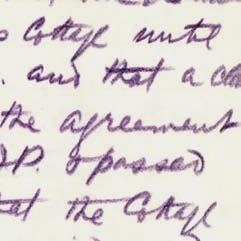 Cottage until
. and that a
the agreement
P. & passed
that the Cottage